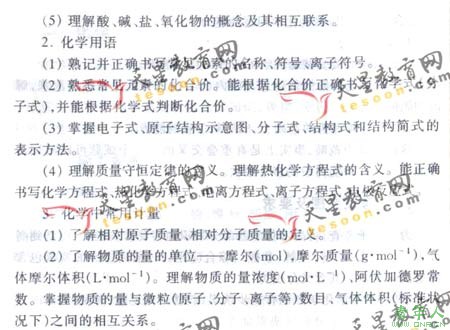 (5) 理解酸、碱、盐、氧化物的概念及其相互联系。
2. 化学用语
(1) 熟记并正确书写常见元素的名称、符号、离子符号。
(2) 熟悉常见元素的化合价。能根据化合价正确书写化学式(
子式),并能根据化学式判断化合价。
(3) 掌握电子式、原子结构示意图、分子式、结构式和结构简式的
表示方法。
(4) 理解质量守恒定律的含义。理解热化学方程式的含义。能正确
书写化学方程式、热化学方程式、电离方程式、离子方程式、电极反应式。
3. 化学中常用计量
(1) 了解相对原子质量、相对分子质量的定义。
(2) 了解物质的量的单位——摩尔(mol),摩尔质量(g·mol⁻¹),气
体摩尔体积(L·mol⁻¹)。理解物质的量浓度(mol·L⁻¹),阿伏加德罗常
数。掌握物质的量与微粒(原子、分子、离子等)数目、气体体积(标准状
况下)之间的相互关系。
天星教育网
tesoon.com
天星教育网
tesoon.com
天星教育网
tesoon.com
天星教育网
tesoon.com